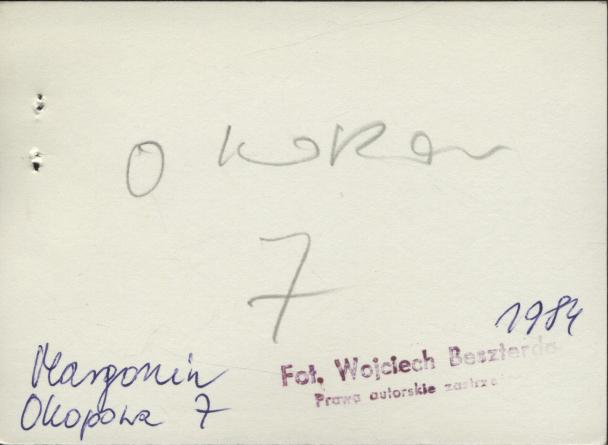 7
1984
Margonin
Okopowa 7
Fot. Wojciech Beszterda
Prawa autorskie zastrze